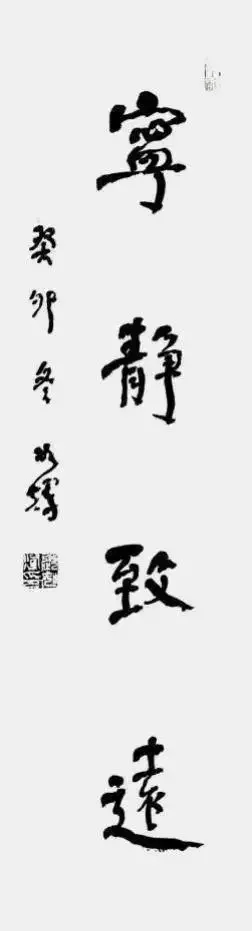 寧靜致遠
癸卯冬